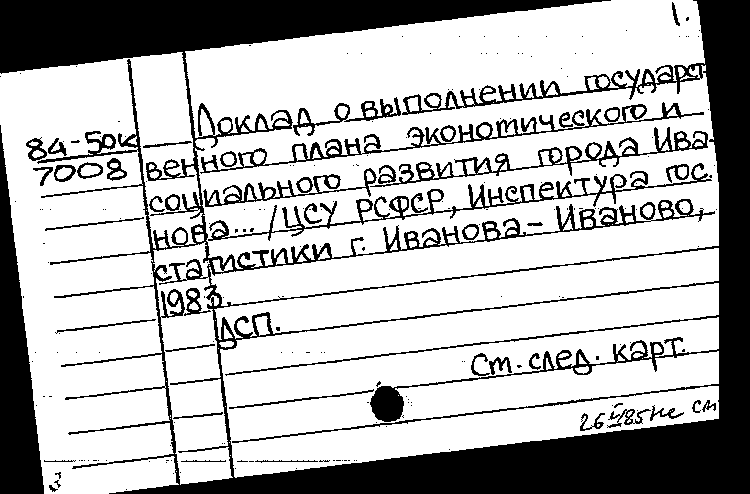 1.
Доклад о выполнении государст
84-50к
7008
венного плана экономического и
социального развития города Ива-
нова... /ЦСУ РСФСР, Инспектура гос.
статистики г. Иванова.- Иваново,
1983.
ДСП.
См. след. карт.
3